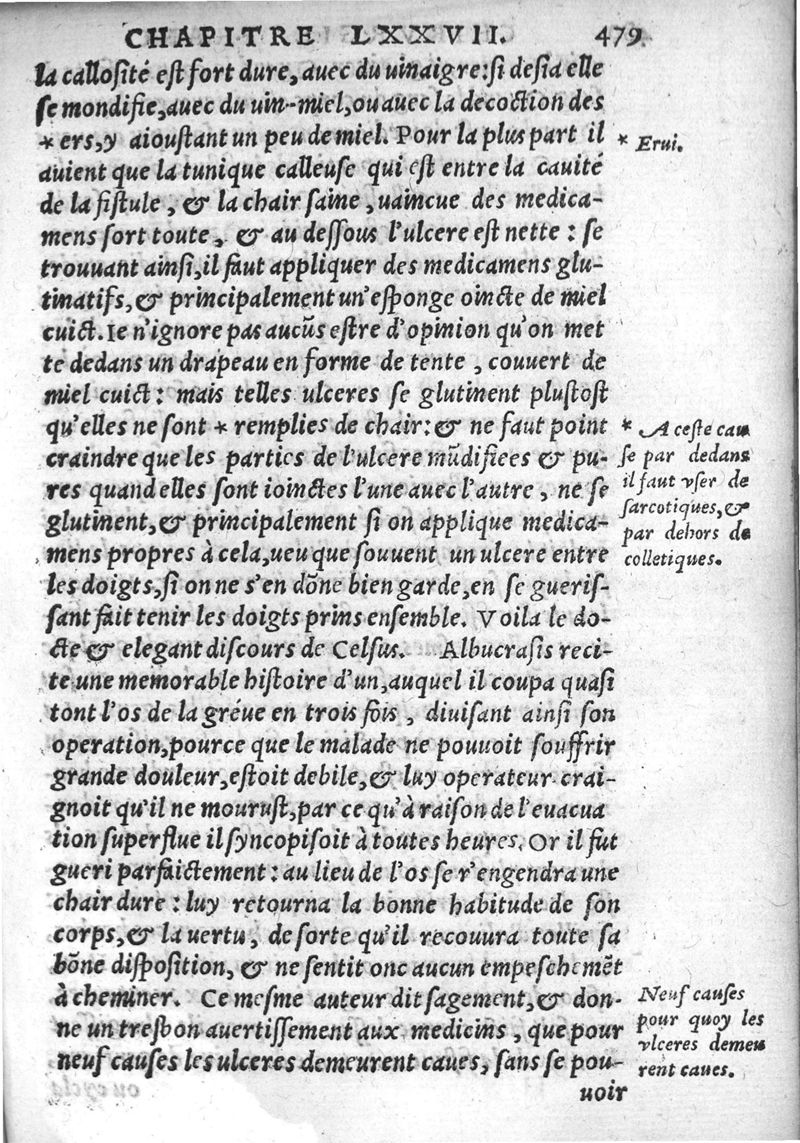 CHAPITRE LXXVII. 479
la callosité est fort dure, auec du uinaigre: si desia elle
se mondifie, auec du uin-miel, ou auec la decoction des
* ers, y aioustant un peu de miel. Pour la plus part il
auient que la tunique calleuse qui est entre la cauité
de la fistule, & la chair saine, uaincue des medica-
mens sort toute, & au dessous l'ulcere est nette: se
trouuant ainsi, il faut appliquer des medicamens glu-
tinatifs, & principalement un'esponge oincte de miel
cuict. Ie n'ignore pas aucũs estre d'opinion qu'on met
te dedans un drapeau en forme de tente, couuert de
miel cuict: mais telles ulceres se glutinent plustost
qu'elles ne sont * remplies de chair: & ne faut point
craindre que les parties de l'ulcere mũdifiees & pu-
res quand elles sont ioinctes l'une auec l'autre, ne se
glutinent, & principalement si on applique medica-
mens propres à cela, ueu que souuent un ulcere entre
les doigts, si on ne s'en dõne bien garde, en se gueris-
sant fait tenir les doigts prins ensemble. Voila le do-
cte & elegant discours de Celsus. Albucrasis reci-
te une memorable histoire d'un, auquel il coupa quasi
tont l'os de la gréue en trois fois, diuisant ainsi son
operation, pource que le malade ne pouuoit souffrir
grande douleur, estoit debile, & luy operateur crai-
gnoit qu'il ne mourust, par ce qu'à raison de l'euacua
tion superflue il syncopisoit à toutes heures. Or il fut
gueri parfaictement: au lieu de l'os se r'engendra une
chair dure: luy retourna la bonne habitude de son
corps, & la uertu, de sorte qu'il recouura toute sa
bõne disposition, & ne sentit onc aucun empeschemẽt
à cheminer. Ce mesme auteur dit sagement, & don-
ne un tresbon auertissement aux medicins, que pour
neuf causes les ulceres demeurent caues, sans se pou-
uoir
* Erui.
* A ceste cau
se par dedans
il faut vser de
sarcotiques, &
par dehors de
colletiques.
Neuf causes
pour quoy les
vlceres demeu
rent caues.